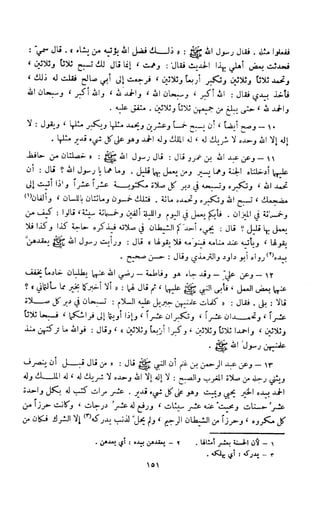 ففعلوا مثله . فقال رسول الله ﷺ : « ذلـــك فضل الله يؤتيه من يشاء » . قال سمي :
فحدثت بعض أهلي بهذا الحديث فقال : وهمت ، إنما قال لك تسبح ثلاثاً وثلاثين ،
وتحمد ثلاثاً وثلاثين وتكبر أربعاً وثلاثين ، فرجعت إلى أبي صالح فقلت له ذلك ،
فأخذ بيدي فقال : الله أكبر ، وسبحان الله ، والحمد لله ، الله أكبر ، وسبحان الله
والحمد لله ، حتى يبلغ من جميعهن ثلاثاً وثلاثين . متفق عليه .
١٠ – وصح أيضاً ، أن يسبح خمساً وعشرين ويحمد مثلها ويكبر مثلها ، ويقول : لا
إله إلا الله وحده لا شريك له ، له الملك وله الحمد وهو على كل شيء قدير . مثلها .
١١ – وعن عبد الله بن عمرو قال : قال رسول الله ﷺ : « خصلتان من حافظ
عليهما أدخلتاه الجنة وهما يسير ومن يعمل بهما قليل . قالوا وما هما يا رسول الله ؟ قال : أن
تحمد الله ، وتكبره وتسبحه في دبر كل صلاة مكتوبـــة عشراً عشراً ، وإذا أتيت إلى
مضجعك ، تسبح الله وتكبره وتحمده مائة . فتلك خمسون ومائتان باللسان ، وألفان(١)
وخمسمائة في الميزان . فأيكم يعمل في اليوم والليلة ألفين وخمسمائة سيئة ؟ قالوا : كيف من
يعمل بها قليل ؟ قال : يجيء أحدكم الشيطان في صلاته فيذكره حاجة كذا وكذا فلا
يقولها ، ويأتيه عند منامه فينومه فلا يقولها » قال : ورأيت رسول الله ﷺ يعقدهن
بيده(٢) رواه أبو داود والترمذي وقال : حسن صحيح .
١٢ – وعن علي – وقد جاء هو وفاطمة – رضي الله عنهما يطلبان خادماً يخفف
عنهما بعض العمل ، فأبى النبي ﷺ عليهما ، ثم قال لهما : « ألا أخبركما بخير مما سألتماني » ؟
قالا : بلى . فقال : « كلمات علمنيهن جبريل عليه السلام : تسبحان في دبر كل صـــلاة
عشراً ، وتحمـــدان عشراً ، وتكبران عشراً ، وإذا أويتما إلى فراشكما ، فسبحا ثلاثاً
وثلاثين ، واحمدا ثلاثاً وثلاثين ، وكبرا أربعاً وثلاثين » ، قال : فوالله ما تركتهن منذ
علمنيهن رسول الله ﷺ .
١٣ – وعن عبد الرحمن بن غنم أن النبي ﷺ قال : « من قال قبـــل أن ينصرف
ويثني رجله من صلاة المغرب والصبح : لا إله إلا الله وحده لا شريك له ، له الملـــك وله
الحمد بيده الخير يحيي ويميت وهو على كل شيء قدير . عشر مرات كتب له بكل واحدة
عشر حسنات ومحيت عنه عشر سيئات ، ورفع له عشر درجات ، وكانت حرزاً من
كل مكروه ، وحرزاً من الشيطان الرجيم ، ولم يحل لذنب يدركه(٣) إلا الشرك فكان من
١ – لأن الحسنة بعشر أمثالها .
٢ – يعقدهن بيده : أي يعدهن .
٣ – يدركه : أي يهلكه .
١٥١